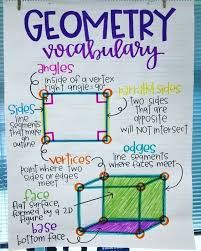 GEOMETRY
vocabulary
angles
inside of a vertex
right angle = 90
parallel sides
two sides
that are
opposite
will NOT intersect
sides
line
segments
that make
an
outline
vertices
point where two
sides or edges
meet
edges
line segments
where faces meet
face
flat surface,
formed by a 2D
figure
base
bottom face